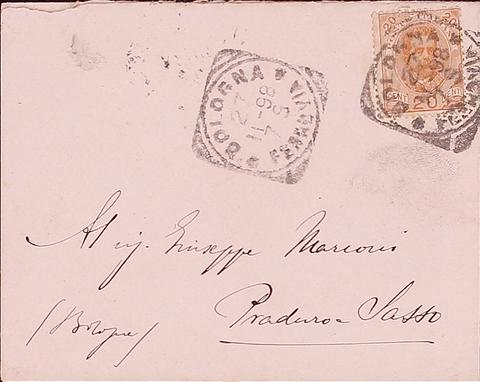 20 20
BOLOGNA
27
11-98
7 S
FERROVIA
BOLOGNA
20
Al sig. Giuseppe Marconi
Praduro e Sasso
(Bologna)